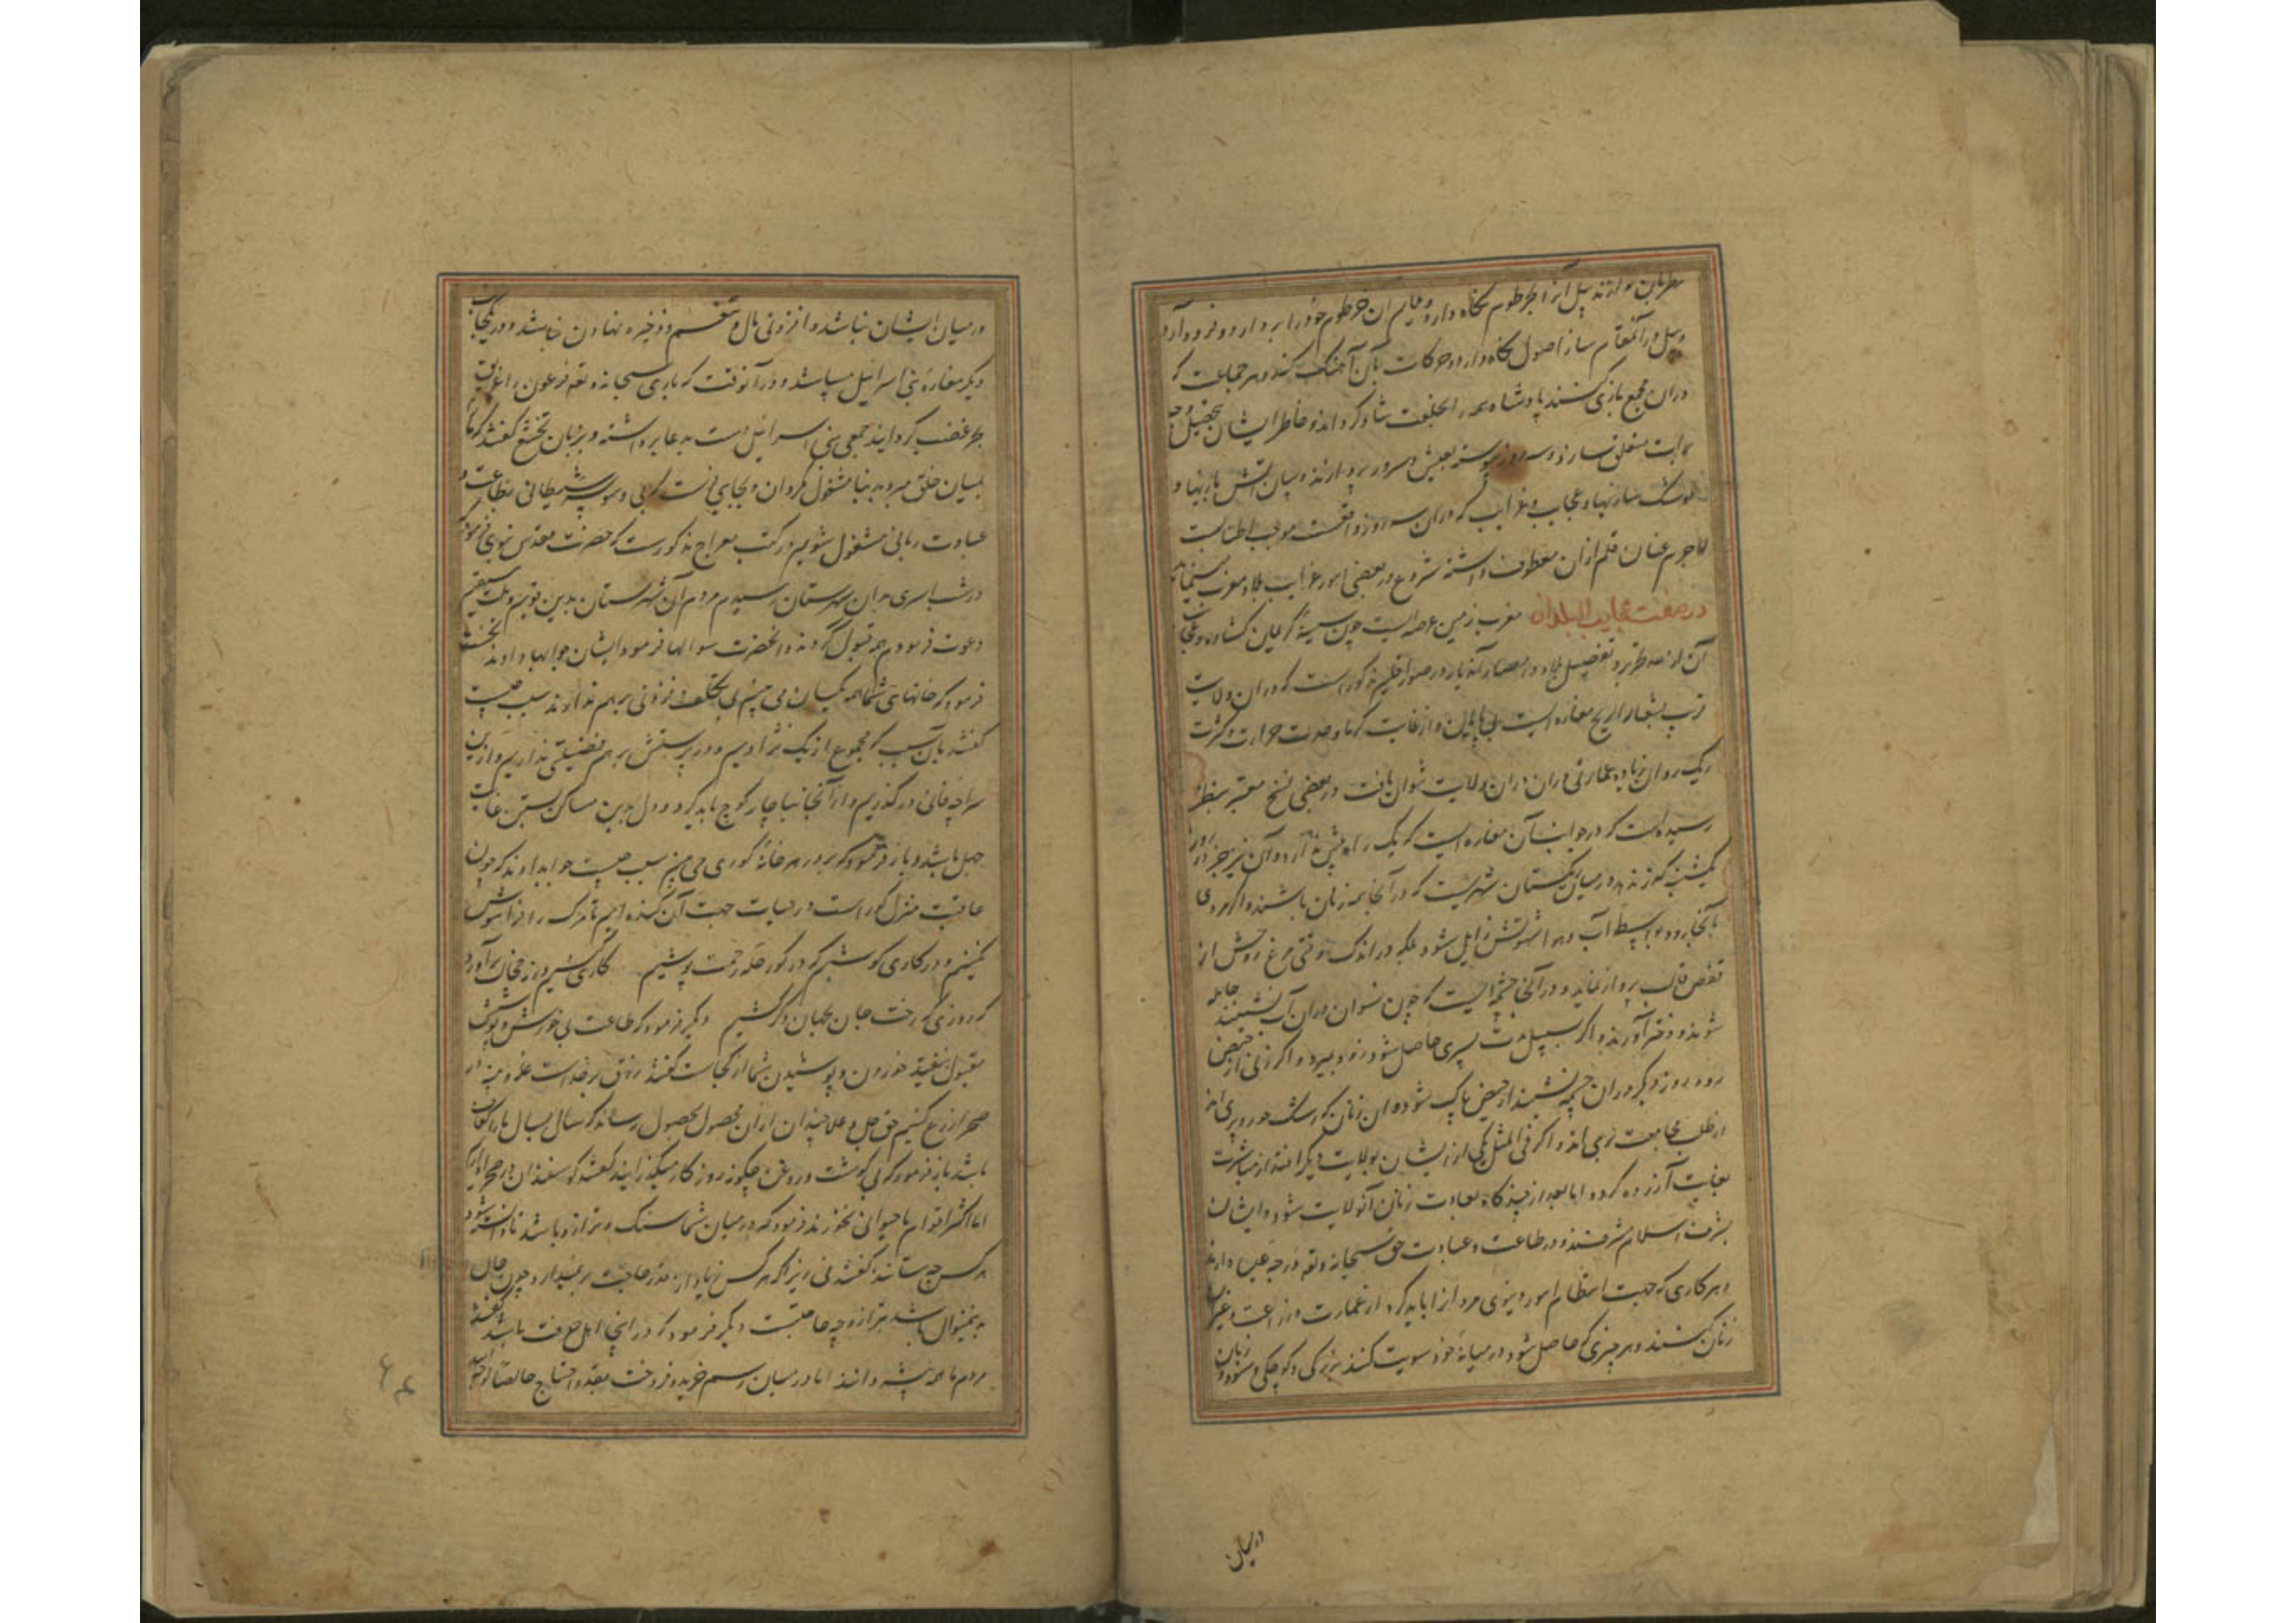 مطربان نوازند پیل آنرا بخرطوم نگاه دارد و قایم آن خرطوم خود را بردارد و فرود آرد
و پیل در آنمقام ساز اصول نگاه دارد و حرکات بآن آهنگ کند و هر جماعت که
در ان مجمع بازی کنند پادشاه همه را بخلعت شاد گرداند و خاطر ایشان بتحصیل
متعلق سازد و سه روز پیوسته بعیش و سرور پردازند و بیان آتش بازیها و
موشک سازیها و عجایب و غرایب که در ان سه روز واقعست موجب اطنابست
لاجرم عنان قلم از ان معطوف داشته شروع در بعضی امور غرایب بلاد مغرب مینماید
در صفت عجایب البلدان مغرب زمین عرصه ایست چون سینهٔ کریمان گشاده و عجایب
آن از حد ... و تفصیل بلاد و امصار آندیار در صور اقالیم مذکور است که در ان ولایت
قرب بشهار اریح مغاره است بی پایان و از غایت گرما و حدت حرارت و کثرت
ریک روان زیاده عمارتی در ان ولایت نتوان یافت و در بعضی نسخ معتبر بنظر
رسیده است که در جوانب آن مغاره است که یک راه پیش ندارد و آن نیز بجز روز
یکشنبه گذر ندهد و در میان ریگستان شهریست که در آنجا همه زنان باشند و اگر مردی
بآنجا رود بواسطهٔ آب و هوا شهوتش زایل شود بلکه در اندک وقتی مرغ روحش از
قفص قالب پرواز نماید و در آنجا چشمه ایست که چون نسوان در ان آب نشینند حامله
شوند و دختر آورند و اگر بسبیل ندرت پسری حاصل شود زود بمیرد و اگر زنی از حیض
رود روز دیگر در ان چشمه نشیند از حیض پاک شود و ان زنان که رشک حور و پری اند
از طلب مجامعت بری اند و اگر فی المثل یکی از ایشان بولایت دیگر افتد از مباشرت
بغایت آزرده گردد اما بعد از چندگاه بعادت زنان آنولایت شود و ایشان
بشرف اسلام مشرفند و در طاعت و عبادت حق سبحانه و تعه درجه علیا دارند
و هر کاری که جهت انتظام امور دنیوی مردان را باید کرد از عمارت و زراعت و غیر آن
زنان کنند و هر چیزی که حاصل شود در میانه خود سویت کنند بزرگی و کوچکی و
در میان
در میان ایشان نباشد و افزونی مال و تنعم و ذخیره نهادن نباشد و در یکجانب
دیگر مغارهٔ بنی اسرائیل میباشد و در آنوقت که باری سبحانه و تعه فرعون را غریق
بحر غضب گردانید جمعی بنی اسرائیل دست بدعا برداشته و بزبان تخشع گفتند که ما را
بمیان خلق مبر و بدنیا مشغول مگردان و بجایی فرست که بی وسوسهٔ شیطانی بطاعت و
عبادت ربانی مشغول شویم در کتب معراج مذکورست که حضرت مقدس نبوی فرمود
در شب اسری بدان شهرستان رسیدم مردم آن شهرستان بدین قویم و ملت مستقیم
دعوت فرمودم همه قبول کردند و انحضرت سوالها فرمود ایشان جوابها دادند نخست
فرمود که خانهای شما همه یکسان می بینم بی تکلف و فزونی برهم ندارند سبب چیست
گفتند بآن سبب که مجموع از یک نژادیم و در پرستش برهم فضیلتی نداریم و ازین
سراچه فانی در گذریم و از آنجا بناچار کوچ باید کرد و دل بدین مساکن بستن غایت
جهل باشد و باز فرمود که بر در هر خانهٔ گوری می بینم سبب چیست جواب دادند که چون
عاقبت منزل گور است در حیات جهت آن کنده ایم تا مرگ را فراموش
نکنیم و در کاری کوشیم که در گور حله رحمت پوشیم   کاری کنیم ورنه خجالت برآورد
که روزی که رخت جان بجهان دگر کشیم   دیگر فرمود که طاعت بی خورش و پوشش
مقبول نیفتد خوردن و پوشیدن شما از کجاست گفتند رزق بر خداست غله و پنبه در
صحرا زرع کنیم حق جل و علا چندان از ان محصول بحصول رساند که سال بسال ما را کفاف
باشد باز فرمود که بی گوشت و روغن چگونه روزگار میگذرانید گفتند گوسفندان در صحرا داریم
اما اکثر اقوام ما حیوانی نخورند فرمود که در میان شما سنگ و ترازو باشد تا دانسته شود
هر کس چه ستاند گفتند نی زیرا که هر کس زیاده از قدر حاجت بر نمیدارد چون حال
بدینمنوال باشد بترازو چه حاجتست دیگر فرمود که در اینجا اهل حرفت باشند گفتند
مردم ما همه پیشه دانند اما در میان رسم خرید و فروخت بنقد و احتیاج